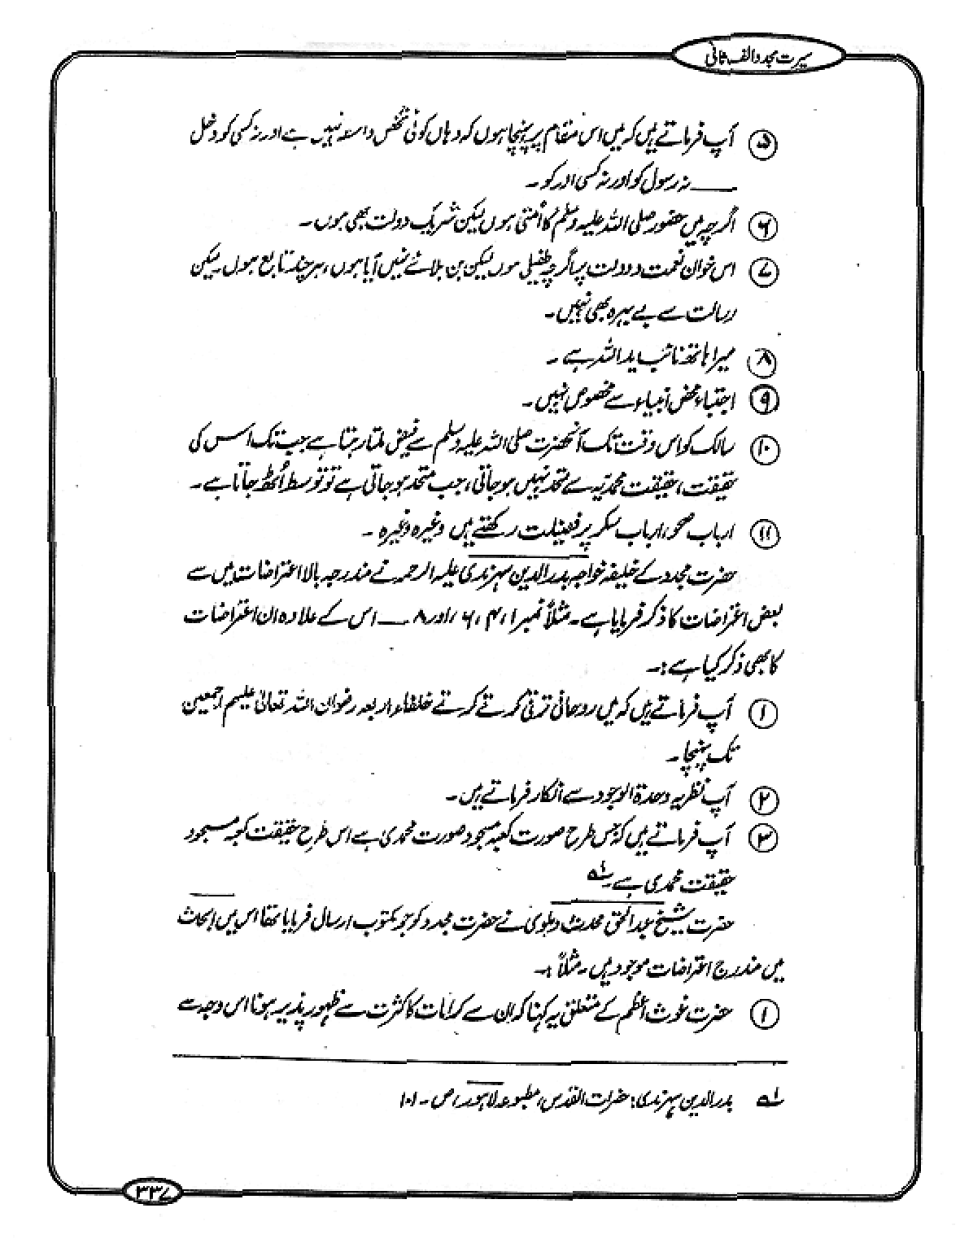 سیرت مجدد الف ثانی
۵ آپ فرماتے ہیں کہ میں اس مقام پر پہنچا ہوں کہ وہاں کوئی شخص واسطہ نہیں ہے اور نہ کسی کو دخل
— نہ رسول کو اور نہ کسی اور کو۔
۶ اگرچہ میں حضور صلی اللہ علیہ وسلم کا اُمتی ہوں لیکن شریک دولت بھی ہوں۔
۷ اس خوان نعمت و دولت پر اگرچہ طفیلی ہوں لیکن بن بلائے نہیں آیا ہوں، ہر چند تابع ہوں لیکن
رسالت سے بے بہرہ بھی نہیں۔
۸ میرا ہاتھ نائب ید اللہ ہے۔
۹ اجتباء محض انبیاء سے مخصوص نہیں۔
۱۰ سالک کو اس وقت تک آنحضرت صلی اللہ علیہ وسلم سے فیض ملتا رہتا ہے جب تک اس کی
حقیقت، حقیقت محمدیہ سے متحد نہیں ہو جاتی، جب متحد ہو جاتی ہے تو توسط اُٹھ جاتا ہے۔
۱۱ ارباب صحو، ارباب سکر پر فضیلت رکھتے ہیں وغیرہ وغیرہ۔
حضرت مجدد کے خلیفہ خواجہ بدر الدین سرہندی علیہ الرحمہ نے مندرجہ بالا اعتراضات میں سے
بعض اعتراضات کا ذکر فرمایا ہے۔ مثلاً نمبر ۱، ۴، ۶، اور ۸ — اس کے علاوہ ان اعتراضات
کا بھی ذکر کیا ہے:۔
۱ آپ فرماتے ہیں کہ میں روحانی ترقی کرتے کرتے خلفاء اربعہ رضوان اللہ تعالیٰ علیہم اجمعین
تک پہنچا۔
۲ آپ نظریہ وحدۃ الوجود سے انکار فرماتے ہیں۔
۳ آپ فرماتے ہیں کہ جس طرح صورت کعبہ مسجود صورت محمدی ہے اس طرح حقیقت کعبہ مسجود
حقیقت محمدی ہے۔ لہ
حضرت شیخ عبد الحق محدث دہلوی نے حضرت مجدد کو جو مکتوب ارسال فرمایا تھا اس میں ابحاث
میں مندرج اعتراضات موجود ہیں۔ مثلاً:۔
۱ حضرت غوث اعظم کے متعلق یہ کہنا کہ ان سے کرامات کا کثرت سے ظہور پذیر ہونا اس وجہ سے
لہ بدر الدین سرہندی: حضرات القدس، مطبوعہ لاہور، ص۔ ۱۰۱
۳۳۷